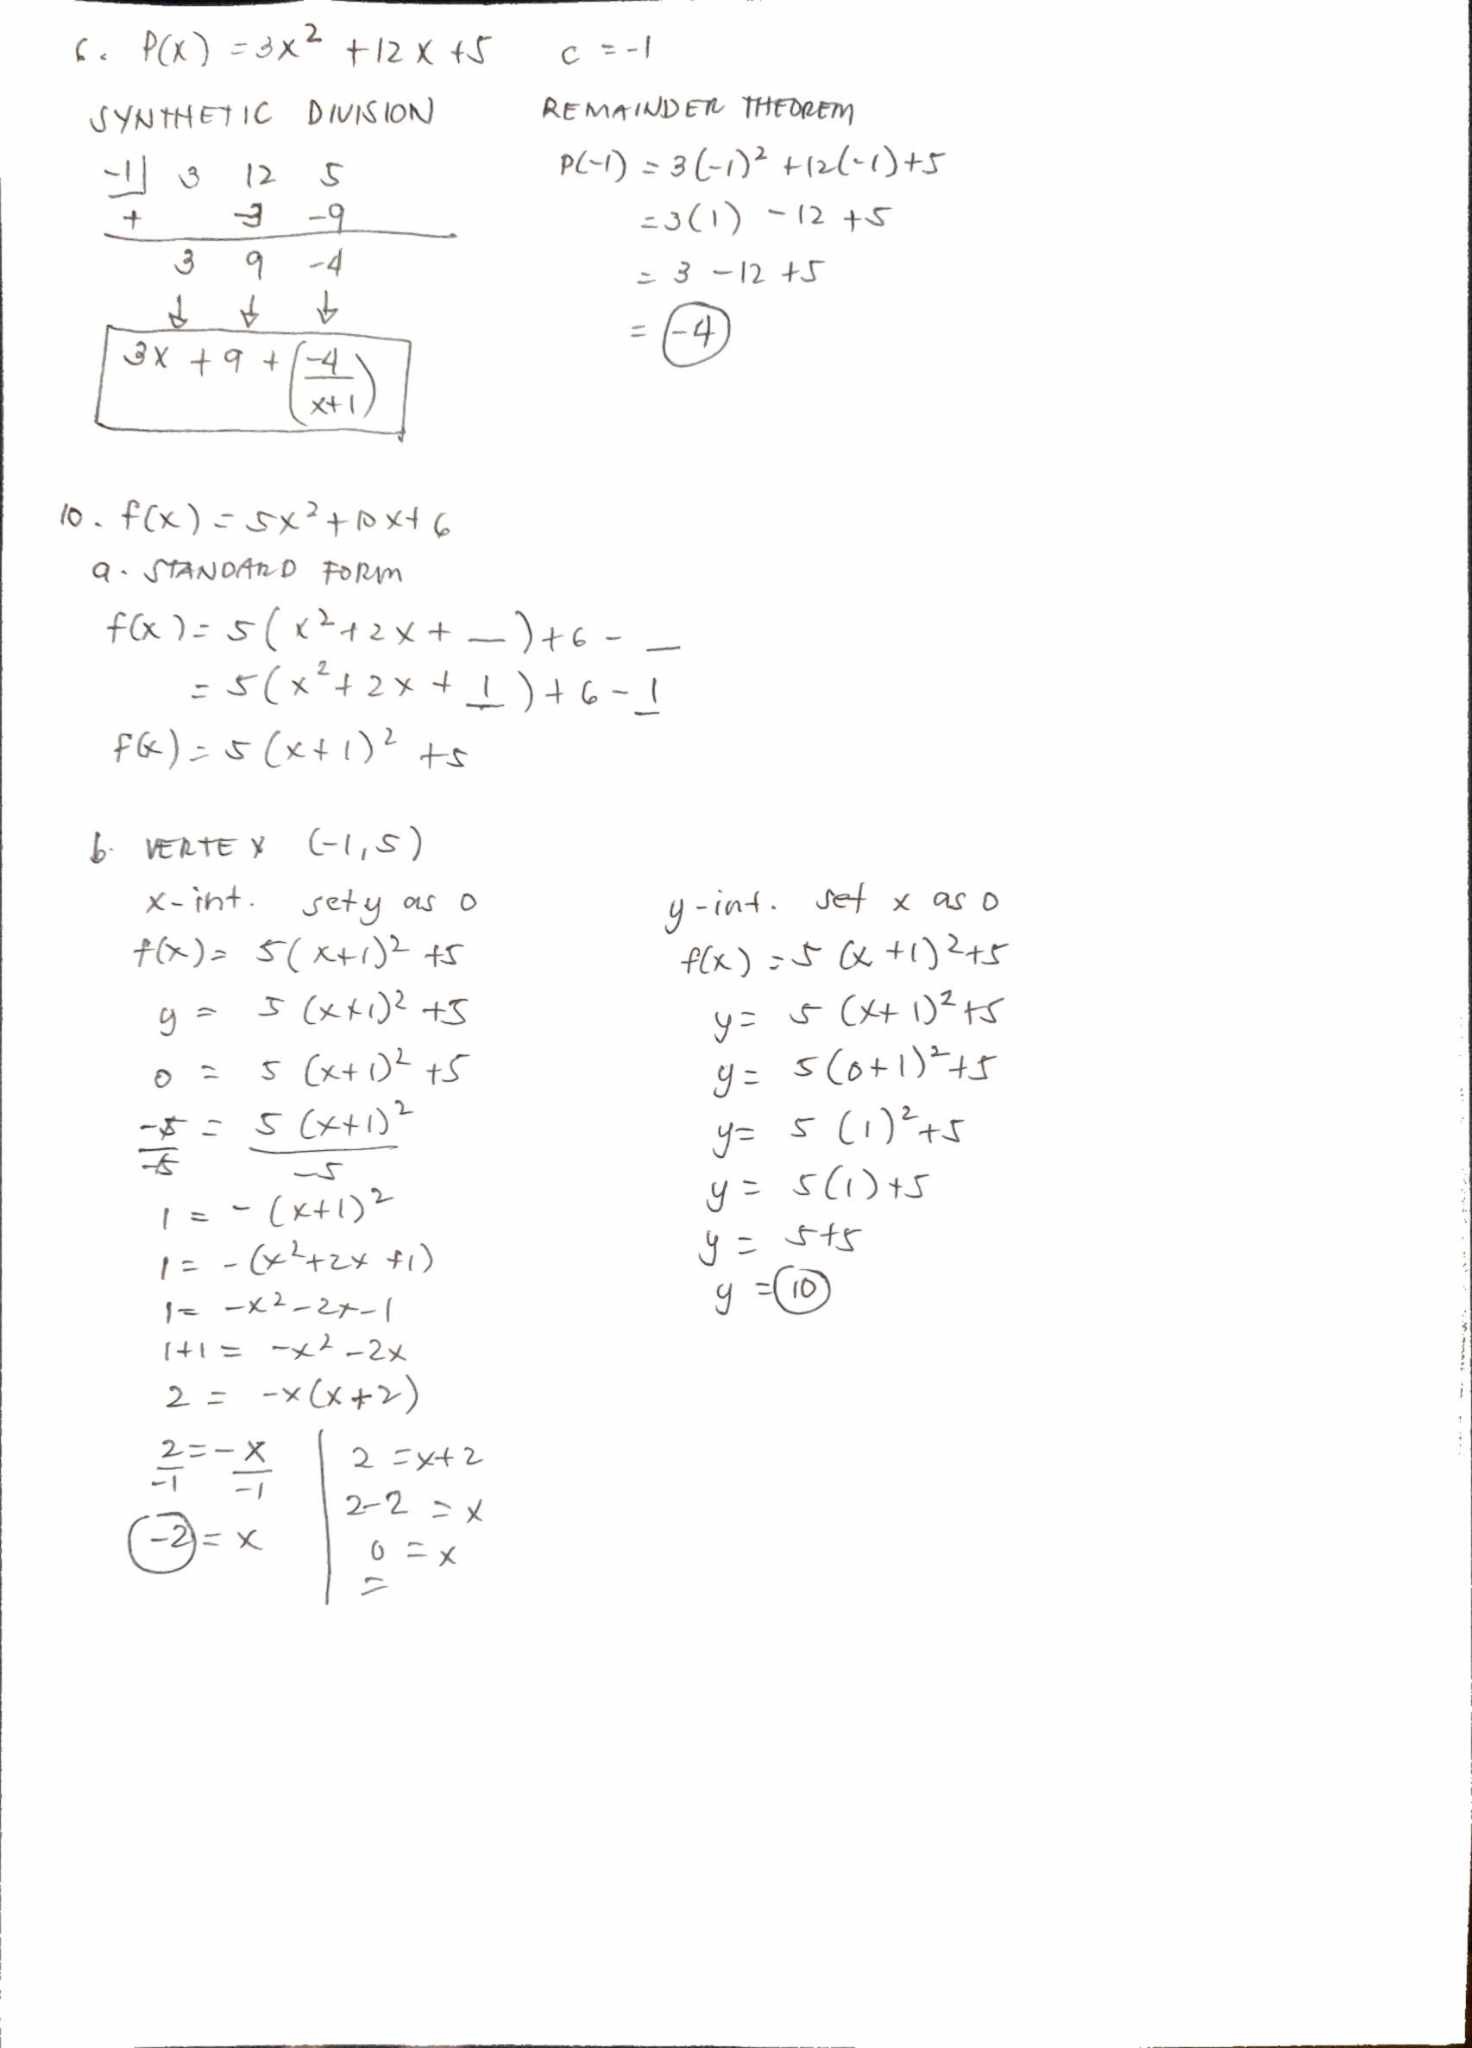 6. P(x) = 3x² + 12x + 5   c = -1
SYNTHETIC DIVISION
-1| 3 12 5
+ -3 -9
3 9 -4
↓ ↓ ↓
3x + 9 + (-4/x+1)
REMAINDER THEOREM
P(-1) = 3(-1)² + 12(-1) + 5
= 3(1) - 12 + 5
= 3 - 12 + 5
= -4
10. f(x) = 5x² + 10x + 6
a. STANDARD FORM
f(x) = 5(x² + 2x + _) + 6 - _
= 5(x² + 2x + 1) + 6 - 1
f(x) = 5(x+1)² + 5
b. VERTEX (-1, 5)
x-int. set y as 0
f(x) = 5(x+1)² + 5
y = 5(x+1)² + 5
0 = 5(x+1)² + 5
-5/-5 = 5(x+1)²/-5
1 = -(x+1)²
1 = -(x²+2x+1)
1 = -x²-2x-1
1+1 = -x²-2x
2 = -x(x+2)
2/-1 = -x/-1
-2 = x
2 = x+2
2-2 = x
0 = x
y-int. set x as 0
f(x) = 5(x+1)²+5
y = 5(x+1)²+5
y = 5(0+1)²+5
y = 5(1)²+5
y = 5(1)+5
y = 5+5
y = 10